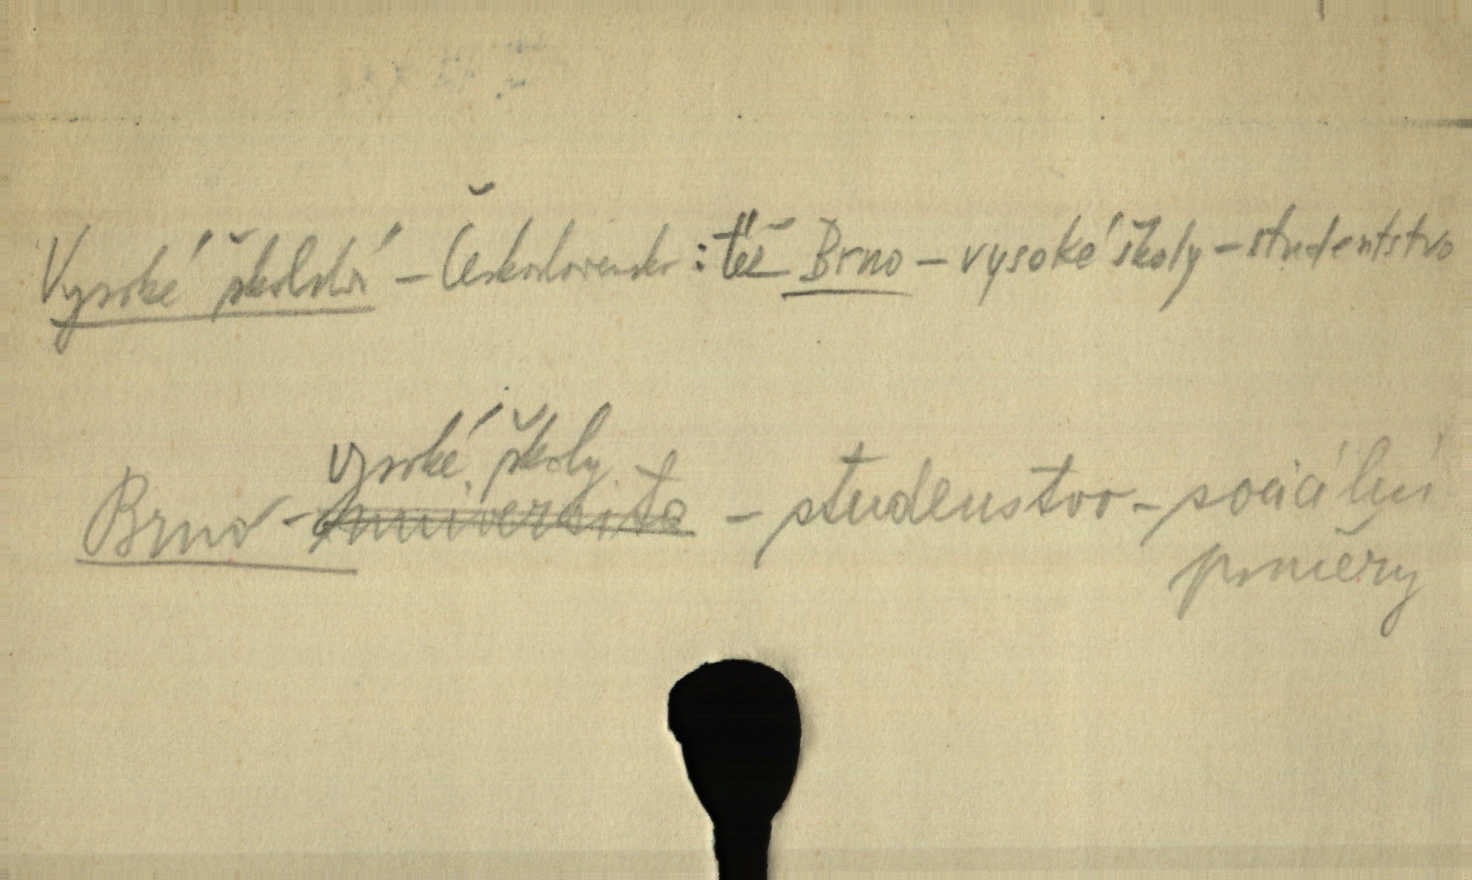 Vysoké školství – Československo : též Brno – vysoké školy – studentstvo
vysoké školy
Brno – universita – studenstvo – sociální
poměry